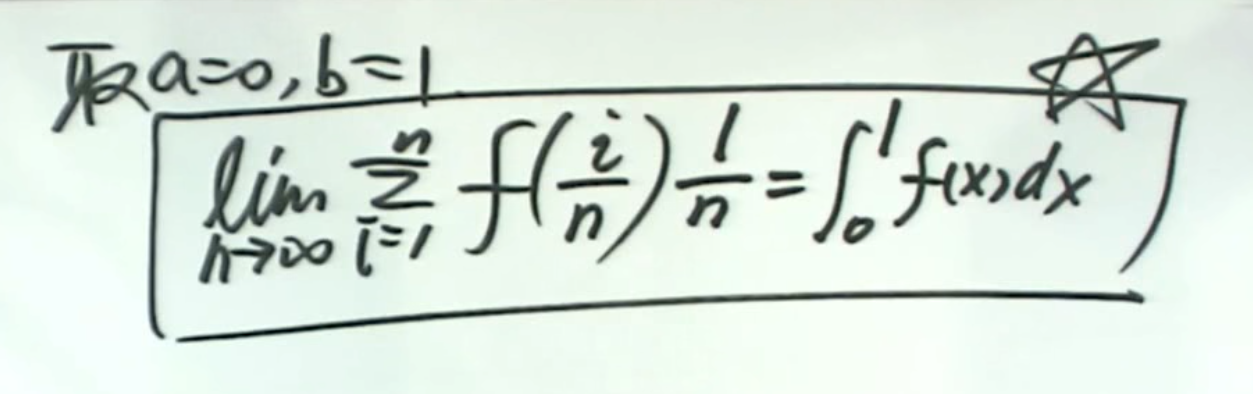 取a=0,b=1
lim n→∞ ∑ i=1 n f(i/n) 1/n = ∫₀¹ f(x)dx